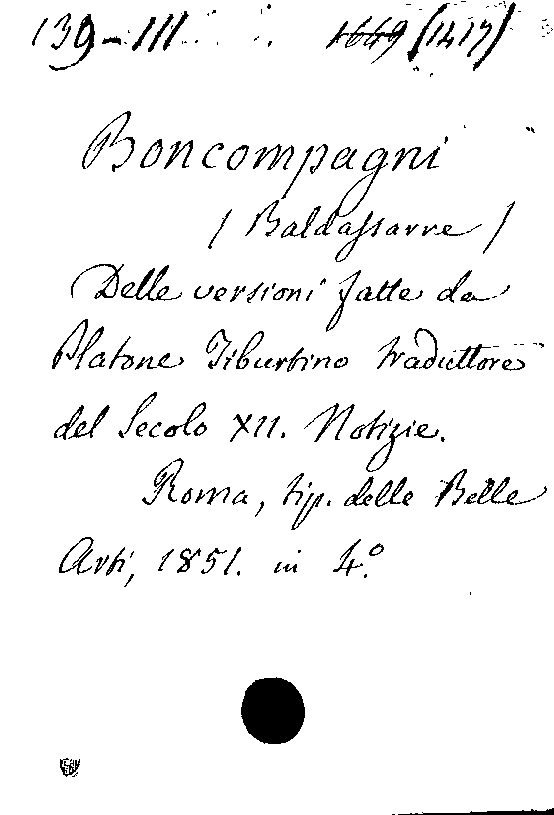 139-III 1669 (1417)
Boncompagni
(Baldassarre)
Delle versioni fatte da
Platone Tiburtino traduttore
del Secolo XII. Notizie.
Roma, tip. delle Belle
Arti, 1851. in 4.º